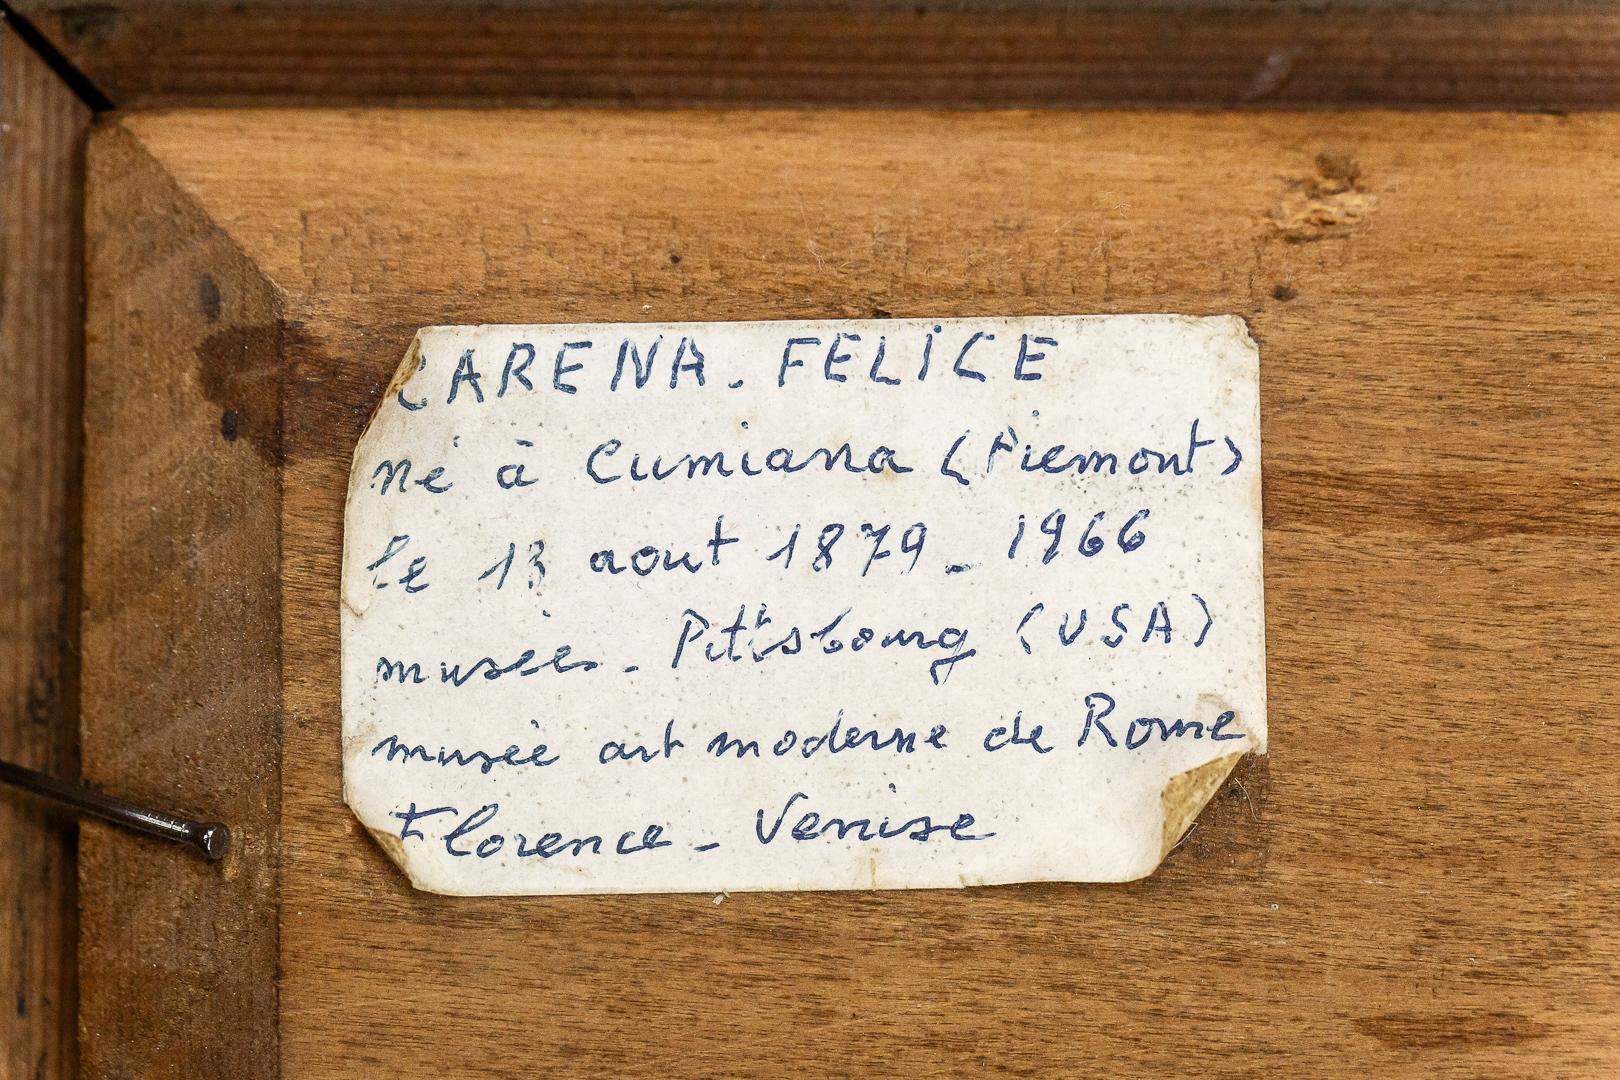 CARENA. FELICE
né à Cumiana (Piemont)
le 13 aout 1879 - 1966
musées - Pittsbourg (USA)
musée art moderne de Rome
Florence - Venise